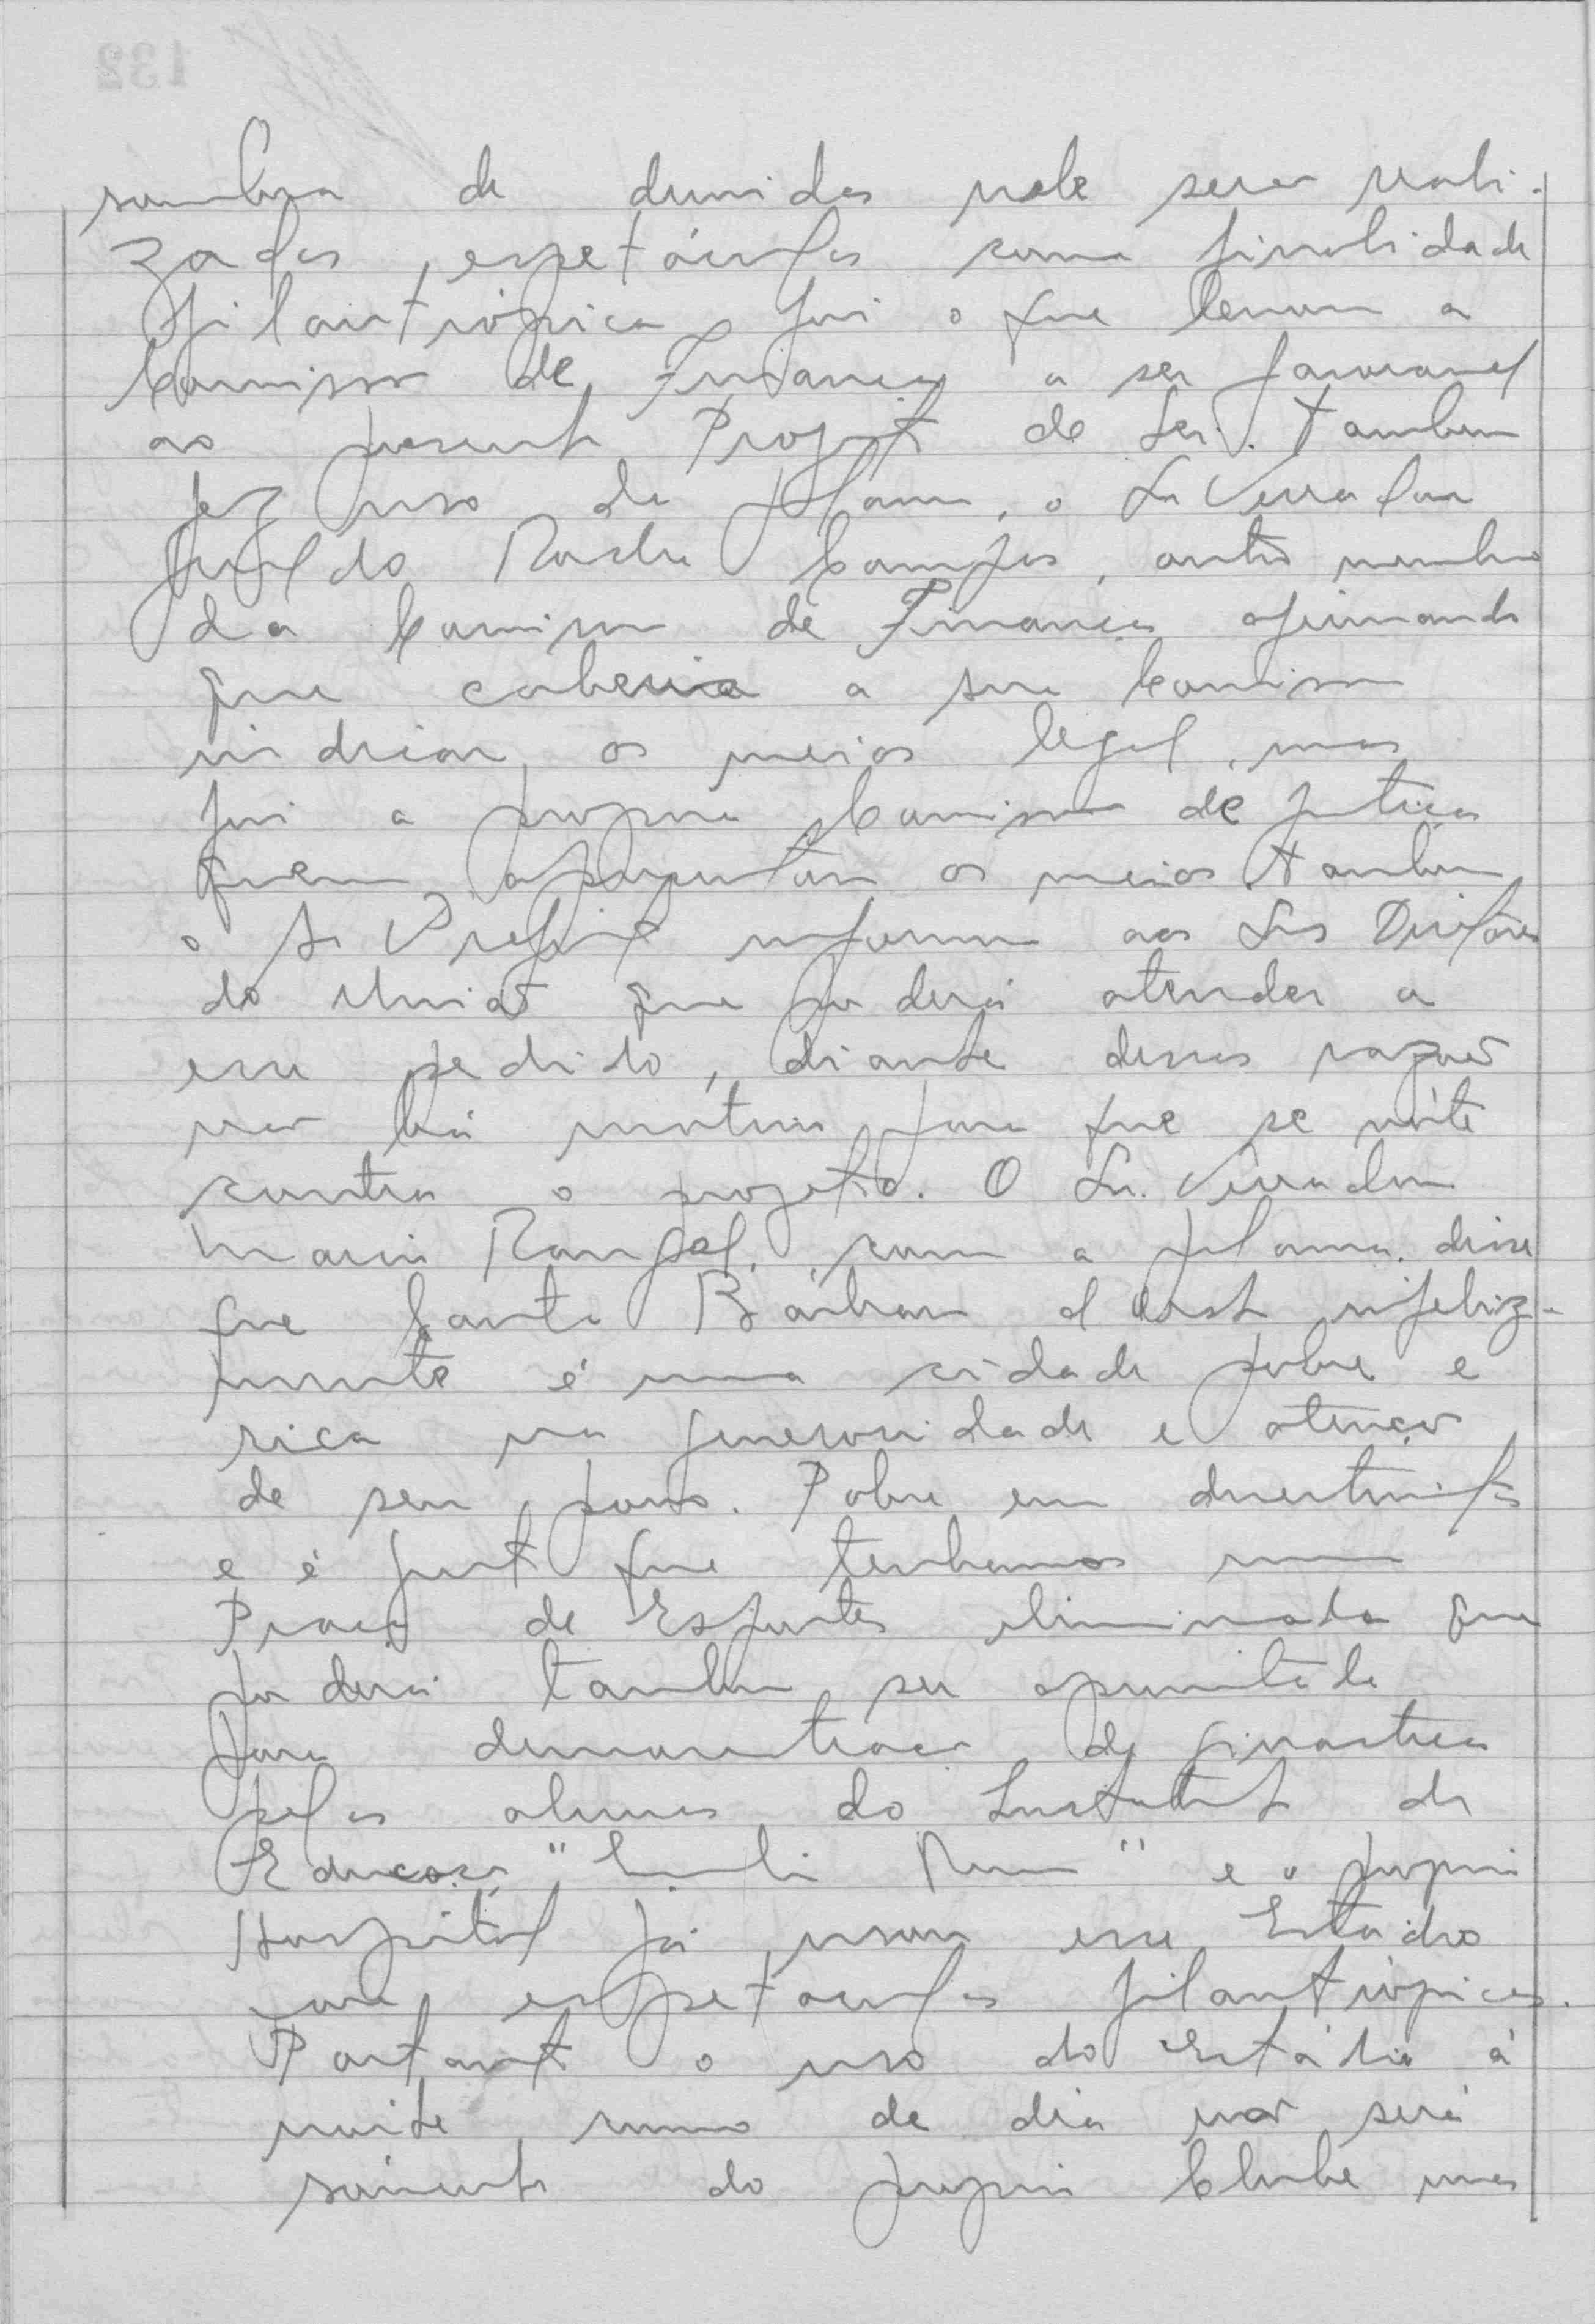 sombra de duvidas nele serão reali-
zados, espetáculos com a finalidade
filantrópica, foi o que levou a
Comissão de Finanças a ser favoravel
ao presente Projeto de Lei. Também
fez uso da palavra, o Sr Vereador
Geraldo Rocha Campos, outro membro
da Comissão de Finanças afirmando
que caberia a sua Comissão
indicar os meios legal, mas
foi a propria Comissão de Justiça
quem apresentou os meios. Também
o Sr Prefeito informou aos Srs Diretores
do União que poderá atender a
esse pedido, diante dessas razões
não há motivos para que se vote
contra o projeto. O Sr. Vereador
Mario Rangel, com a palavra, disse
que Santa Bárbara d'Oeste infeliz-
mente é uma cidade pobre e
rica na generosidade e atenção
de seu povo. Pobre em divertimentos
e é justo que tenhamos uma
Praça de Esportes iluminada que
poderá também ser aproveitada
para demonstração de ginastica
pelos alunos do Instituto de
Educação " " e o proprio
Hospital já usou esse Estadio
para espetaculos filantrópicos.
Portanto o uso do Estádio á
noite, como de dia não será
sómente do proprio Clube mas